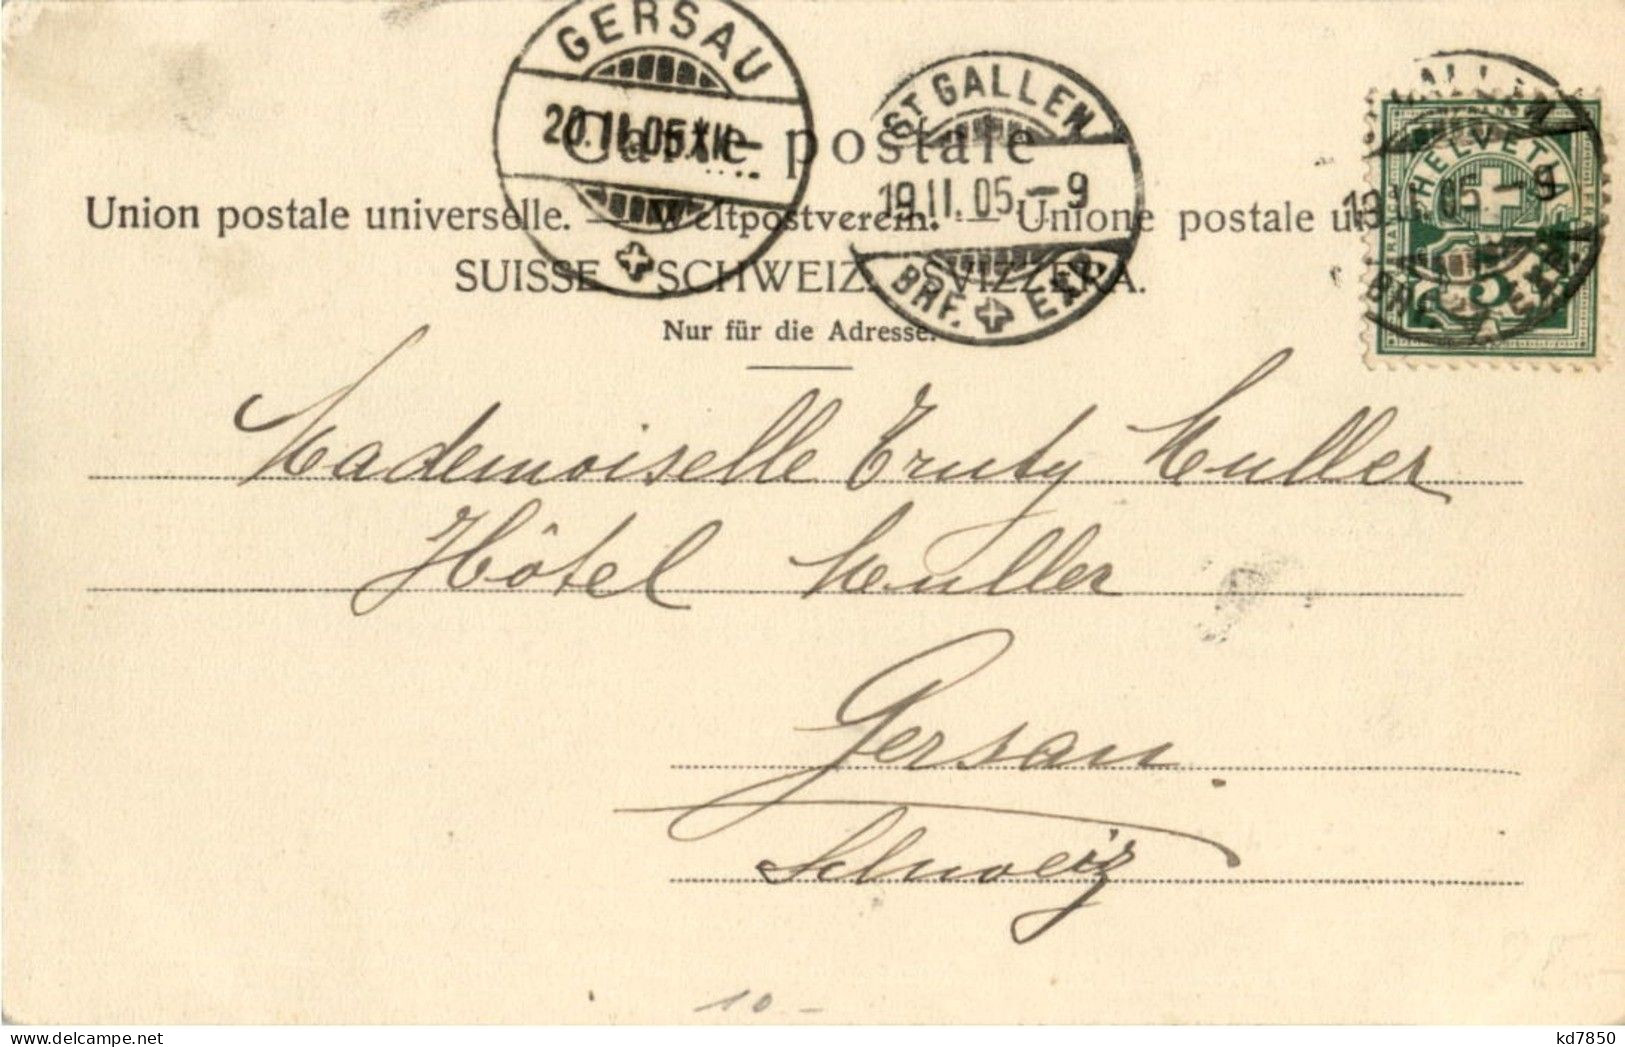 GERSAU
20.II.05.XII-
ST GALLEN
19.II.05.-9
BRF. EXP.
HELVETIA
FRANCO
5
19.II.05.-9
BRF. EXP.
Carte postale
Union postale universelle. — Weltpostverein. — Unione postale un
SUISSE SCHWEIZ. SVIZZERA.
Nur für die Adresse.
Mademoiselle Truty Muller
Hôtel Muller
Gersau.
Schweiz
10 -
kd7850